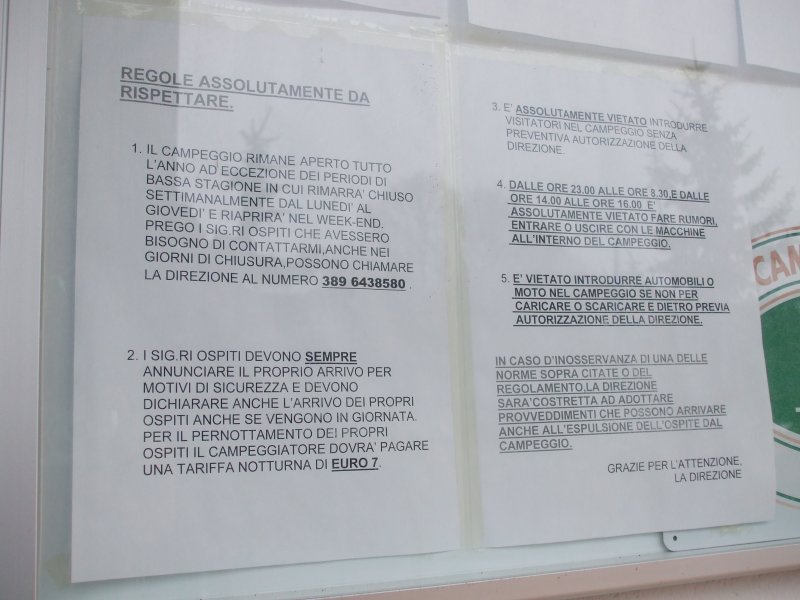 REGOLE ASSOLUTAMENTE DA
RISPETTARE.
1. IL CAMPEGGIO RIMANE APERTO TUTTO
L'ANNO AD ECCEZIONE DEI PERIODI DI
BASSA STAGIONE IN CUI RIMARRA' CHIUSO
SETTIMANALMENTE DAL LUNEDI' AL
GIOVEDI' E RIAPRIRA' NEL WEEK-END.
PREGO I SIG.RI OSPITI CHE AVESSERO
BISOGNO DI CONTATTARMI,ANCHE NEI
GIORNI DI CHIUSURA,POSSONO CHIAMARE
LA DIREZIONE AL NUMERO 389 6438580 .
2. I SIG.RI OSPITI DEVONO SEMPRE
ANNUNCIARE IL PROPRIO ARRIVO PER
MOTIVI DI SICUREZZA E DEVONO
DICHIARARE ANCHE L'ARRIVO DEI PROPRI
OSPITI ANCHE SE VENGONO IN GIORNATA.
PER IL PERNOTTAMENTO DEI PROPRI
OSPITI IL CAMPEGGIATORE DOVRA' PAGARE
UNA TARIFFA NOTTURNA DI EURO 7.
3. E' ASSOLUTAMENTE VIETATO INTRODURRE
VISITATORI NEL CAMPEGGIO SENZA
PREVENTIVA AUTORIZZAZIONE DELLA
DIREZIONE.
4. DALLE ORE 23.00 ALLE ORE 8.30,E DALLE
ORE 14.00 ALLE ORE 16.00 E'
ASSOLUTAMENTE VIETATO FARE RUMORI,
ENTRARE O USCIRE CON LE MACCHINE
ALL'INTERNO DEL CAMPEGGIO.
5. E' VIETATO INTRODURRE AUTOMOBILI O
MOTO NEL CAMPEGGIO SE NON PER
CARICARE O SCARICARE E DIETRO PREVIA
AUTORIZZAZIONE DELLA DIREZIONE.
IN CASO D'INOSSERVANZA DI UNA DELLE
NORME SOPRA CITATE O DEL
REGOLAMENTO,LA DIREZIONE
SARA'COSTRETTA AD ADOTTARE
PROVVEDDIMENTI CHE POSSONO ARRIVARE
ANCHE ALL'ESPULSIONE DELL'OSPITE DAL
CAMPEGGIO.
GRAZIE PER L'ATTENZIONE,
LA DIREZIONE
CAM